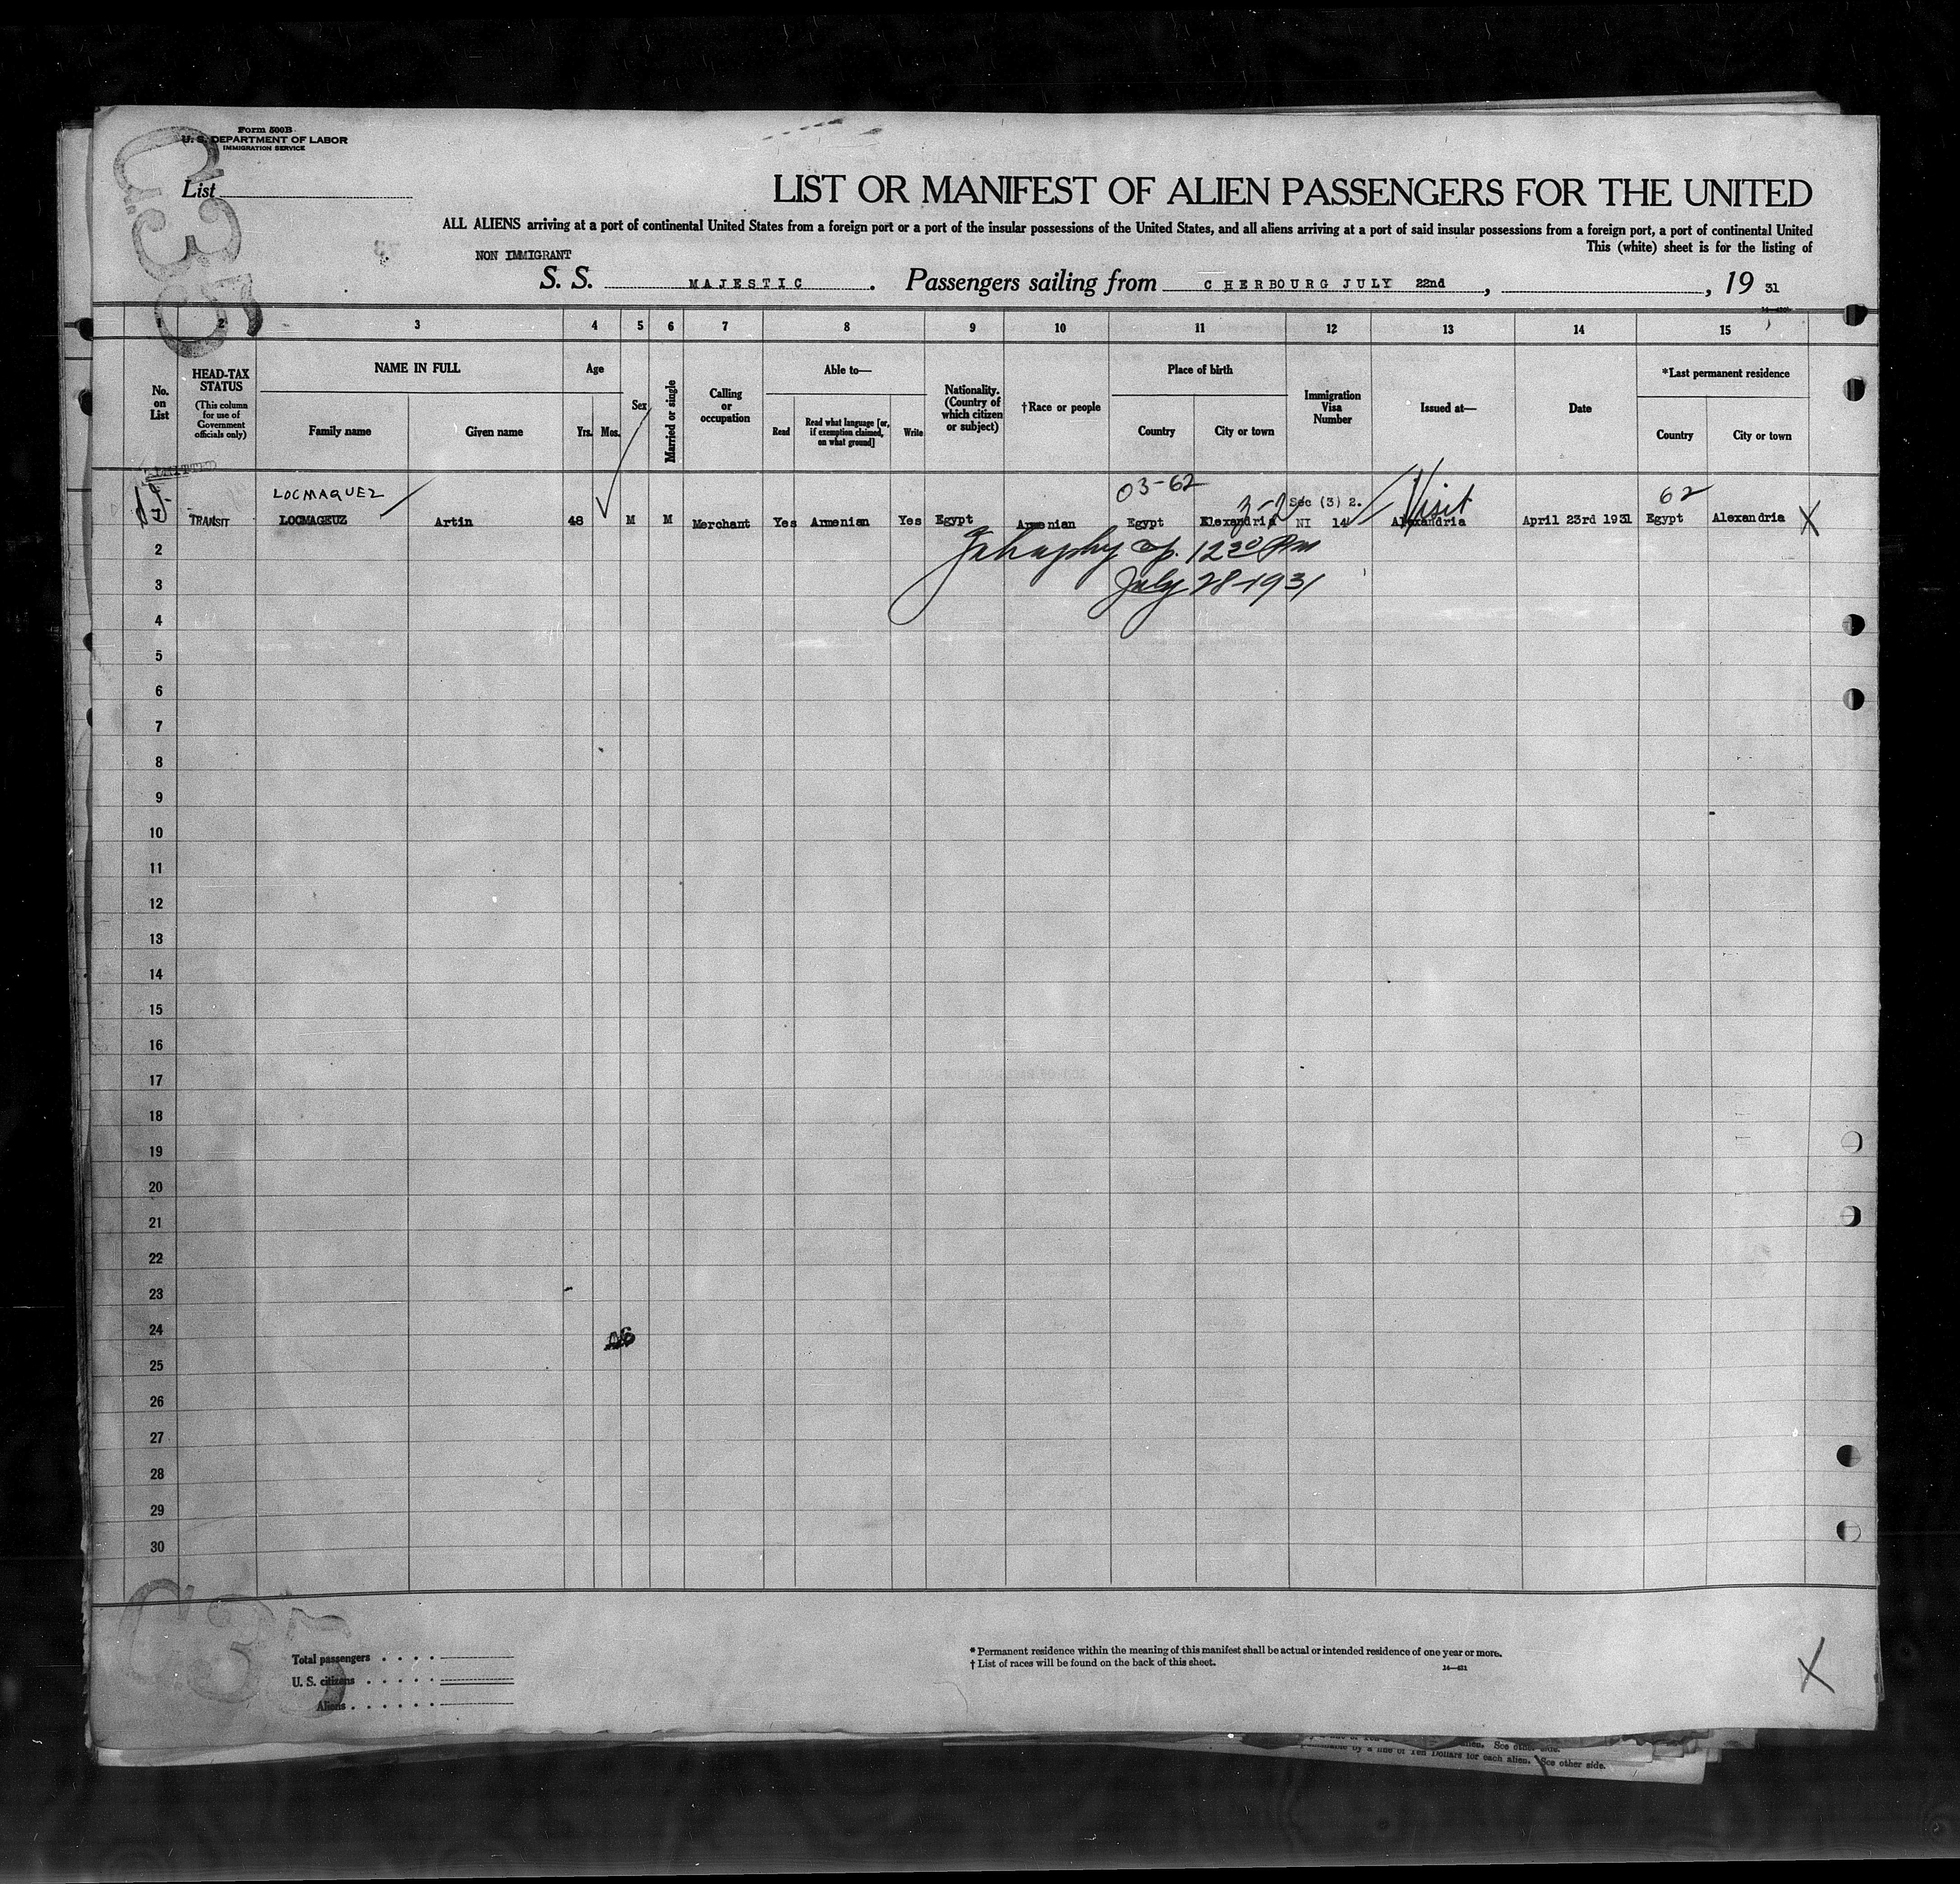 Form 500B
U. S. DEPARTMENT OF LABOR
IMMIGRATION SERVICE
List
LIST OR MANIFEST OF ALIEN PASSENGERS FOR THE UNITED
ALL ALIENS arriving at a port of continental United States from a foreign port or a port of the insular possessions of the United States, and all aliens arriving at a port of said insular possessions from a foreign port, a port of continental United
This (white) sheet is for the listing of
NON IMMIGRANT
S. S. MAJESTIC. Passengers sailing from CHERBOURG JULY 22nd, , 19 31
1 2 3 4 5 6 7 8 9 10 11 12 13 14 15
No. on List
HEAD-TAX STATUS (This column for use of Government officials only)
NAME IN FULL
Family name Given name
Age
Yrs. Mos.
Sex
Married or single
Calling or occupation
Able to—
Read
Read what language [or, if exemption claimed, on what ground]
Write
Nationality. (Country of which citizen or subject)
†Race or people
Place of birth
Country City or town
Immigration Visa Number
Issued at—
Date
*Last permanent residence
Country City or town
ADMITTED
LOCMAQUEZ 03-62 3-2 Sec (3) 2. Visit 62
TRANSIT LOCMAGEUZ Artin 48 M M Merchant Yes Armenian Yes Egypt Armenian Egypt Alexandria NI 14 Alexandria April 23rd 1931 Egypt Alexandria X
2
12 30 Pm
3
July 28-1931
4
5
6
7
8
9
10
11
12
13
14
15
16
17
18
19
20
21
22
23
24
25
26
27
28
29
30
Total passengers
U. S. citizens
Aliens
* Permanent residence within the meaning of this manifest shall be actual or intended residence of one year or more.
† List of races will be found on the back of this sheet.
14—421
X
alien. See other side.
punishable by a fine of Ten Dollars for each alien. See other side.